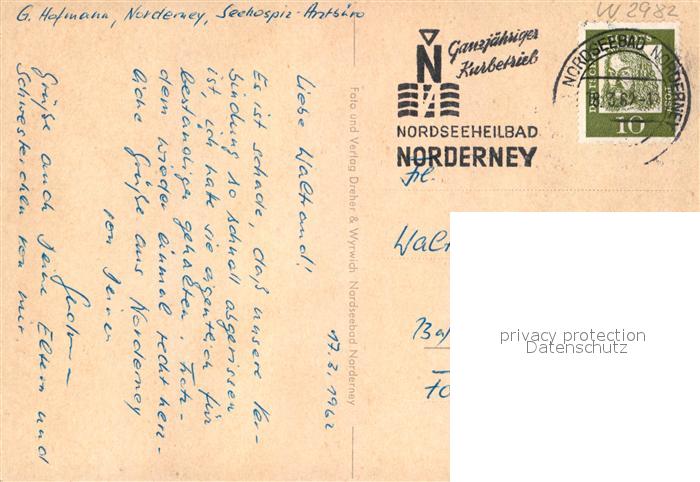 G. Hofmann, Norderney, Seehospiz-Arztbüro
W 2982
17. 2. 1962
Liebe Waltraud!
Es ist schade, daß unsere Ver-
bindung so schnell abgerissen
ist, ich hatte sie eigentlich für
beständiger gehalten. Trotz-
dem wieder einmal recht herz-
liche Grüße aus Norderney
von Deiner
Grüße auch Deine Eltern und
Schwesterchen von mir.
Foto und Verlag Dreher & Wyrwich Nordseebad Norderney
Ganzjähriger
Kurbetrieb
N
NORDSEEHEILBAD
NORDERNEY
NORDSEEBAD NORDERNEY
DEUTSCHE BUNDESPOST
10
Frl.
Walt
privacy protection
Datenschutz